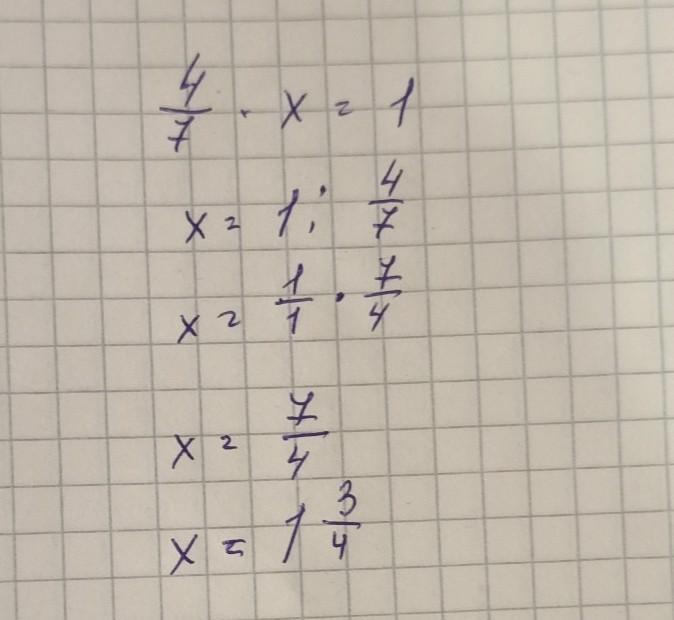 4/7 · x = 1
x = 1 : 4/7
x = 1/1 · 7/4
x = 7/4
x = 1 3/4